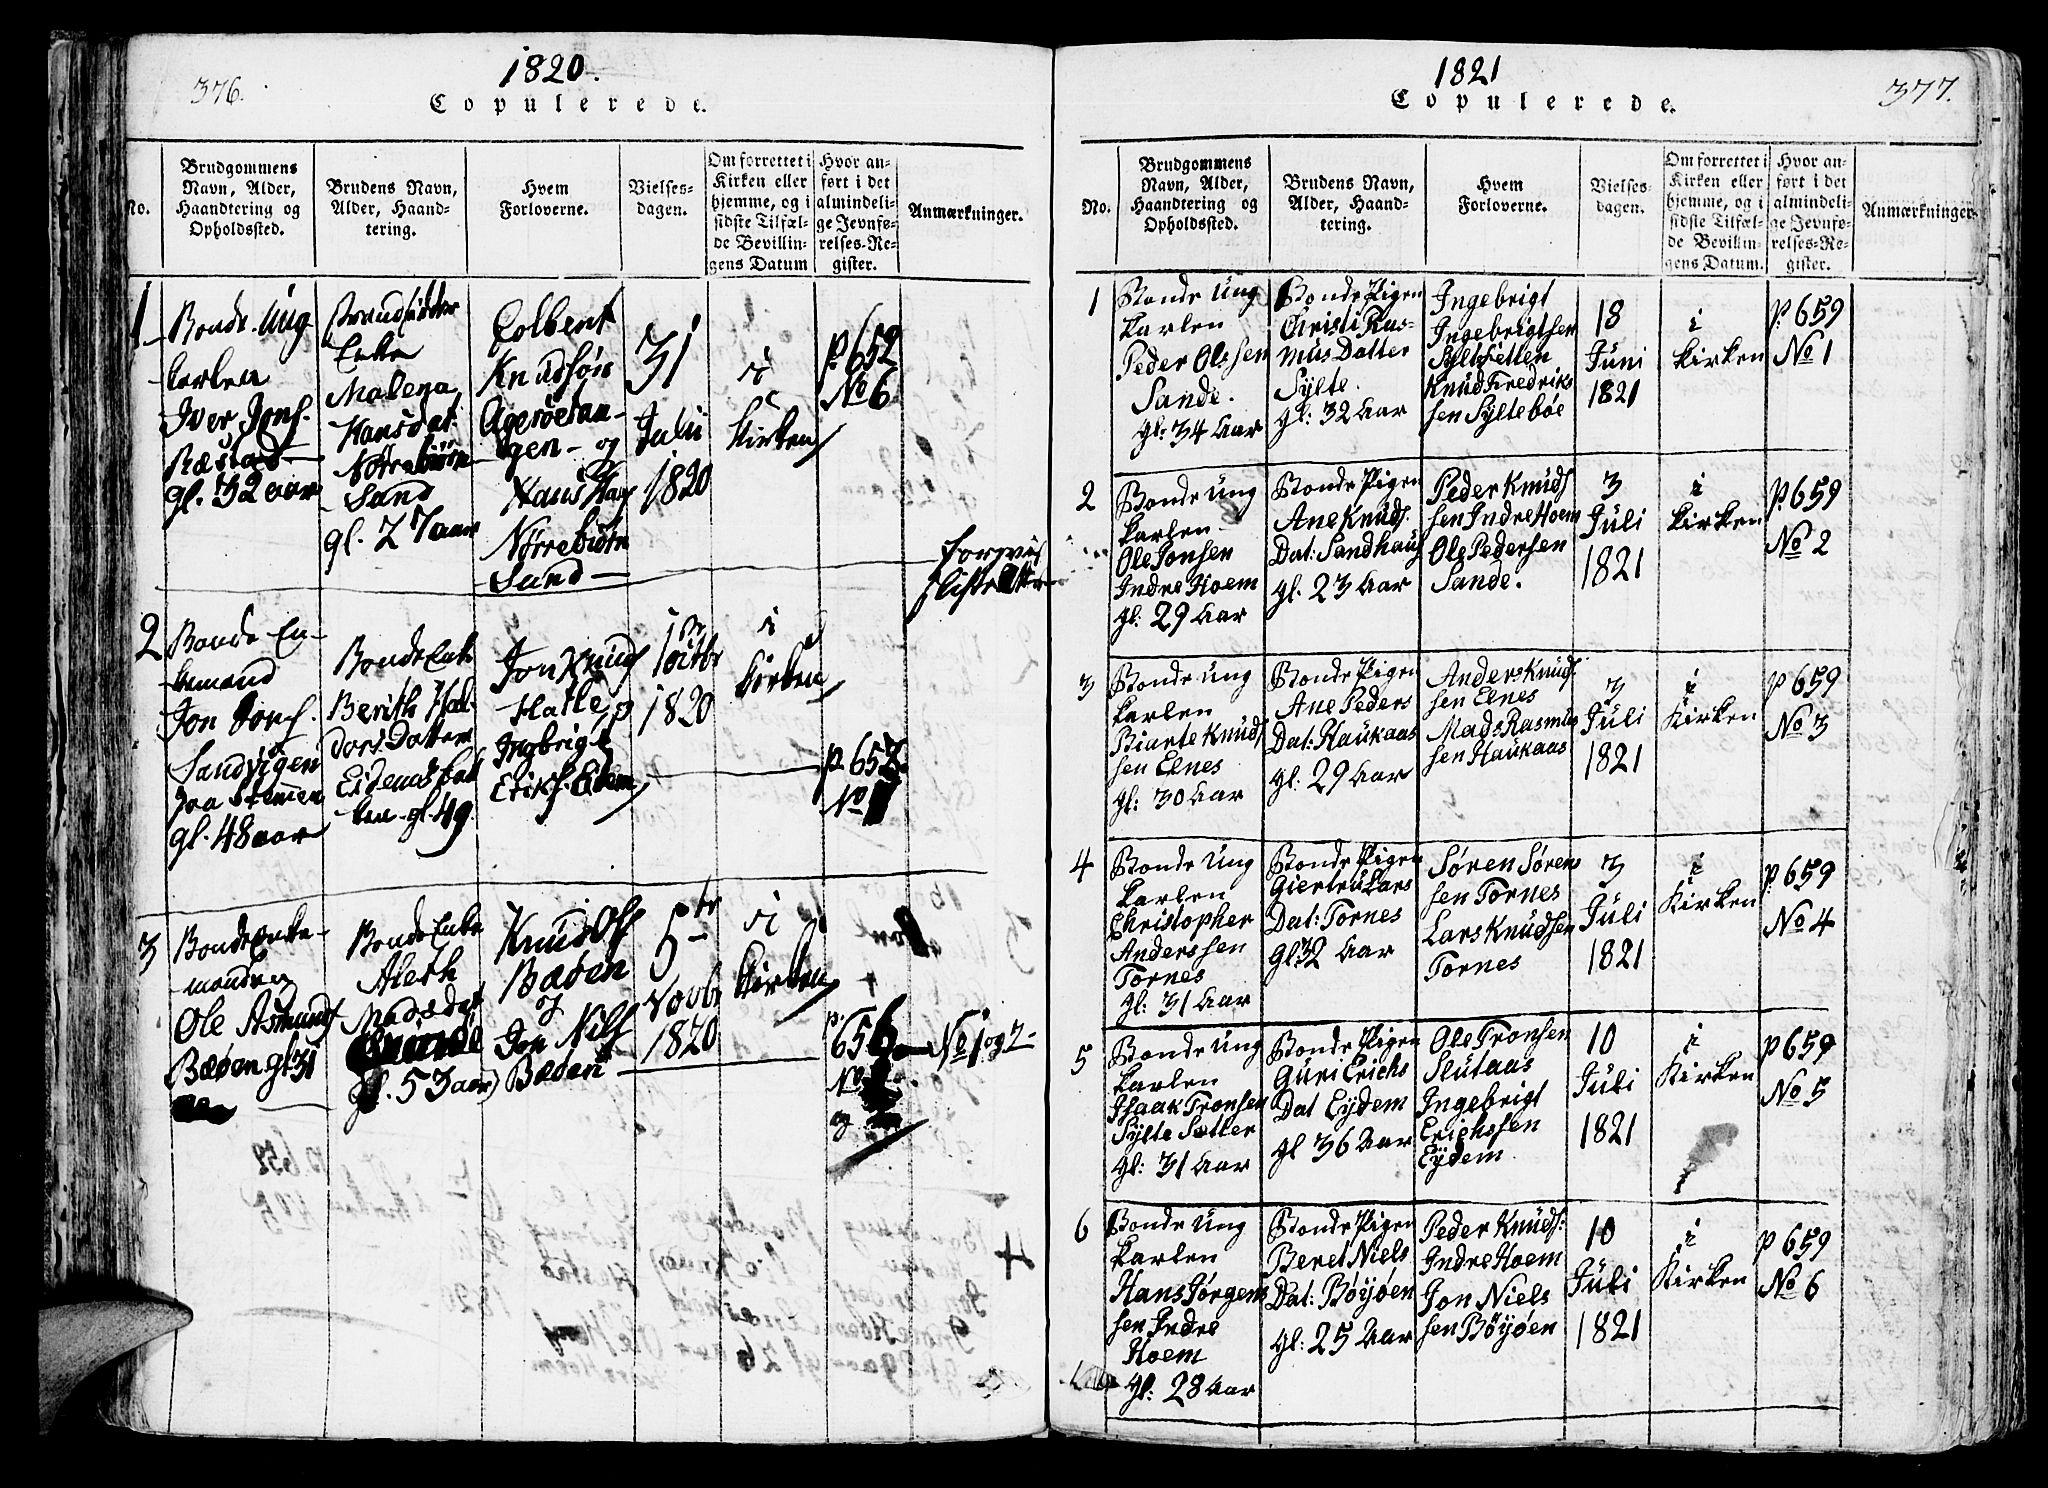 376.
1820.
Copulerede.
No.
Brudgommens
Navn, Alder,
Haandtering og
Opholdssted.
Brudens Navn,
Alder, Haand-
tering.
Hvem
Forloverne.
Vielses-
dagen.
Om forrettet i
Kirken eller
hjemme, og i
sidste Tilfæl-
de Bevillin-
gens Datum
Hvor an-
ført i det
almindeli-
ge Jevnfø-
relses-Re-
gister.
Anmærkninger.
1
Bonde Ung-
karlen
Iver Jons.
Ræstad
gl. 32 aar
Enke
Malena
Hansdat:
Nørrebiørn
Sand
gl. 27 aar
Colbent
Knudsøn
Agerøetan-
gen - og
Hans
Nørrebiørn
Sand
31
Julii
1820
i
Kirken
p. 652
No 6
2
Bonde En-
kemand
Jon Jons.
Sandvigen
paa
gl. 48 aar
Bonde Enke
Berith Hal-
dors Datter
gl. 49.
Jon Knuds
Hatle, og
Ingbrigt
Eriks. Eidem
1820
i
Kirken
p. 657
No 1
3
Bonde Enke-
manden
Ole Asmunds
Bøen gl 31
Bonde Enke
Aleth
Madsdat
gl. 53 aar
Knud Ols
Bøen
og
Jon Nils
Bøen
5te
Novbr
1820
i
Kirken
p.
656
No
og
No 1 og 2
1821
Copulerede.
377.
No.
Brudgommens
Navn, Alder,
Haandtering og
Opholdssted.
Brudens Navn,
Alder, Haand-
tering.
Hvem
Forloverne.
Vielses-
dagen.
Om forrettet i
Kirken eller
hjemme, og i
sidste Tilfæl-
de Bevillin-
gens Datum.
Hvor an-
ført i det
almindeli-
ge Jevnfø-
relses-Re-
gister.
Anmærkninger.
1
Bonde Ung
karlen
Peder Olssen
Sande.
gl: 34 Aar
Bonde Pigen
Christi Ras-
mus Datter
Sylte.
gl: 32 Aar
Ingebrigt
Ingebrigtsen
Syltesetten
Knud Fredriks
sen Syltebøe
18
Juni
1821
i
kirken
p: 659
No 1
2
Bonde Ung
karlen
Ole Jonsen
Indre Hoem
gl: 29 Aar
Bonde Pigen
Ane Knuds.
Dat: Sandhaug
gl. 23 Aar
Peder Knuds
sen Indre Hoem
Ole Pedersen
Sande.
3
Juli
1821
i
kirken
p. 659
No 2
3
Bonde Ung
karlen
Biarte Knuds
sen Elnes
gl: 30 Aar
Bonde Pigen
Ane Peders
Dat: Haukaas
gl: 29 Aar
Anders Knuds.
sen Elnes
Mads Rasmus
sen Haukaas
3
Juli
1821
i
Kirken
p 659
No 3
4
Bonde Ung
karlen
Christopher
Anderssen
Tornes
gl: 31 Aar
Bonde Pigen
Giertru Lars
Dat: Tornes
gl: 32 Aar
Søren Sørens
sen Tornes
Lars Knudsen
Tornes
3
Juli
1821
i
Kirken
p. 659
No 4
5
Bonde Ung
karlen
Isaak Tronsen
Sylte Sætter
gl: 31 Aar
Bonde Pigen
Guri Erichs
Dat Eydem
gl 36 Aar
Ole Tronsen
Slutaas
Ingebrigt
Erichssen
Eydem.
10
Juli
1821
i
Kirken
p 659
No 5
6
Bonde Ung
karlen
Hans Jørgens
sen Indre
Hoem
gl: 28 Aar
Bonde Pigen
Beret Niels
Dat: Bøyøen
gl: 25 Aar
Peder Knuds:
Indre Hoem
Jon Niels
sen Bøyøen
10
Juli
1821
i
Kirken
p 659
No 6